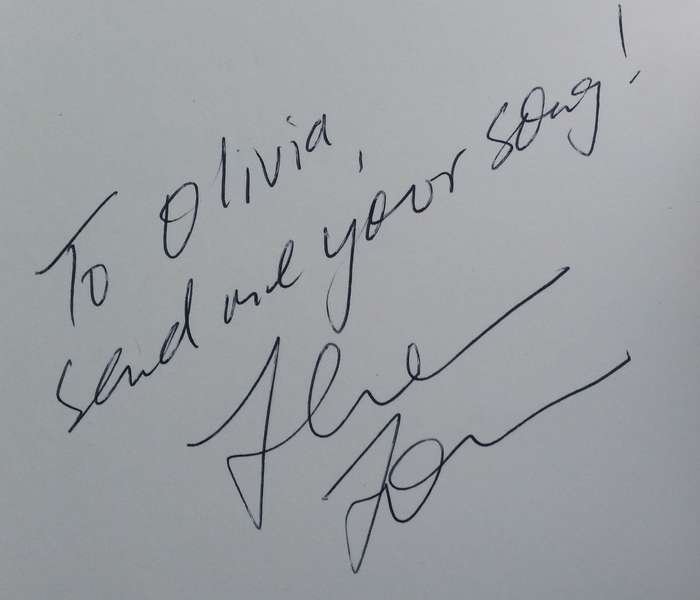 To Olivia,
send me your song!